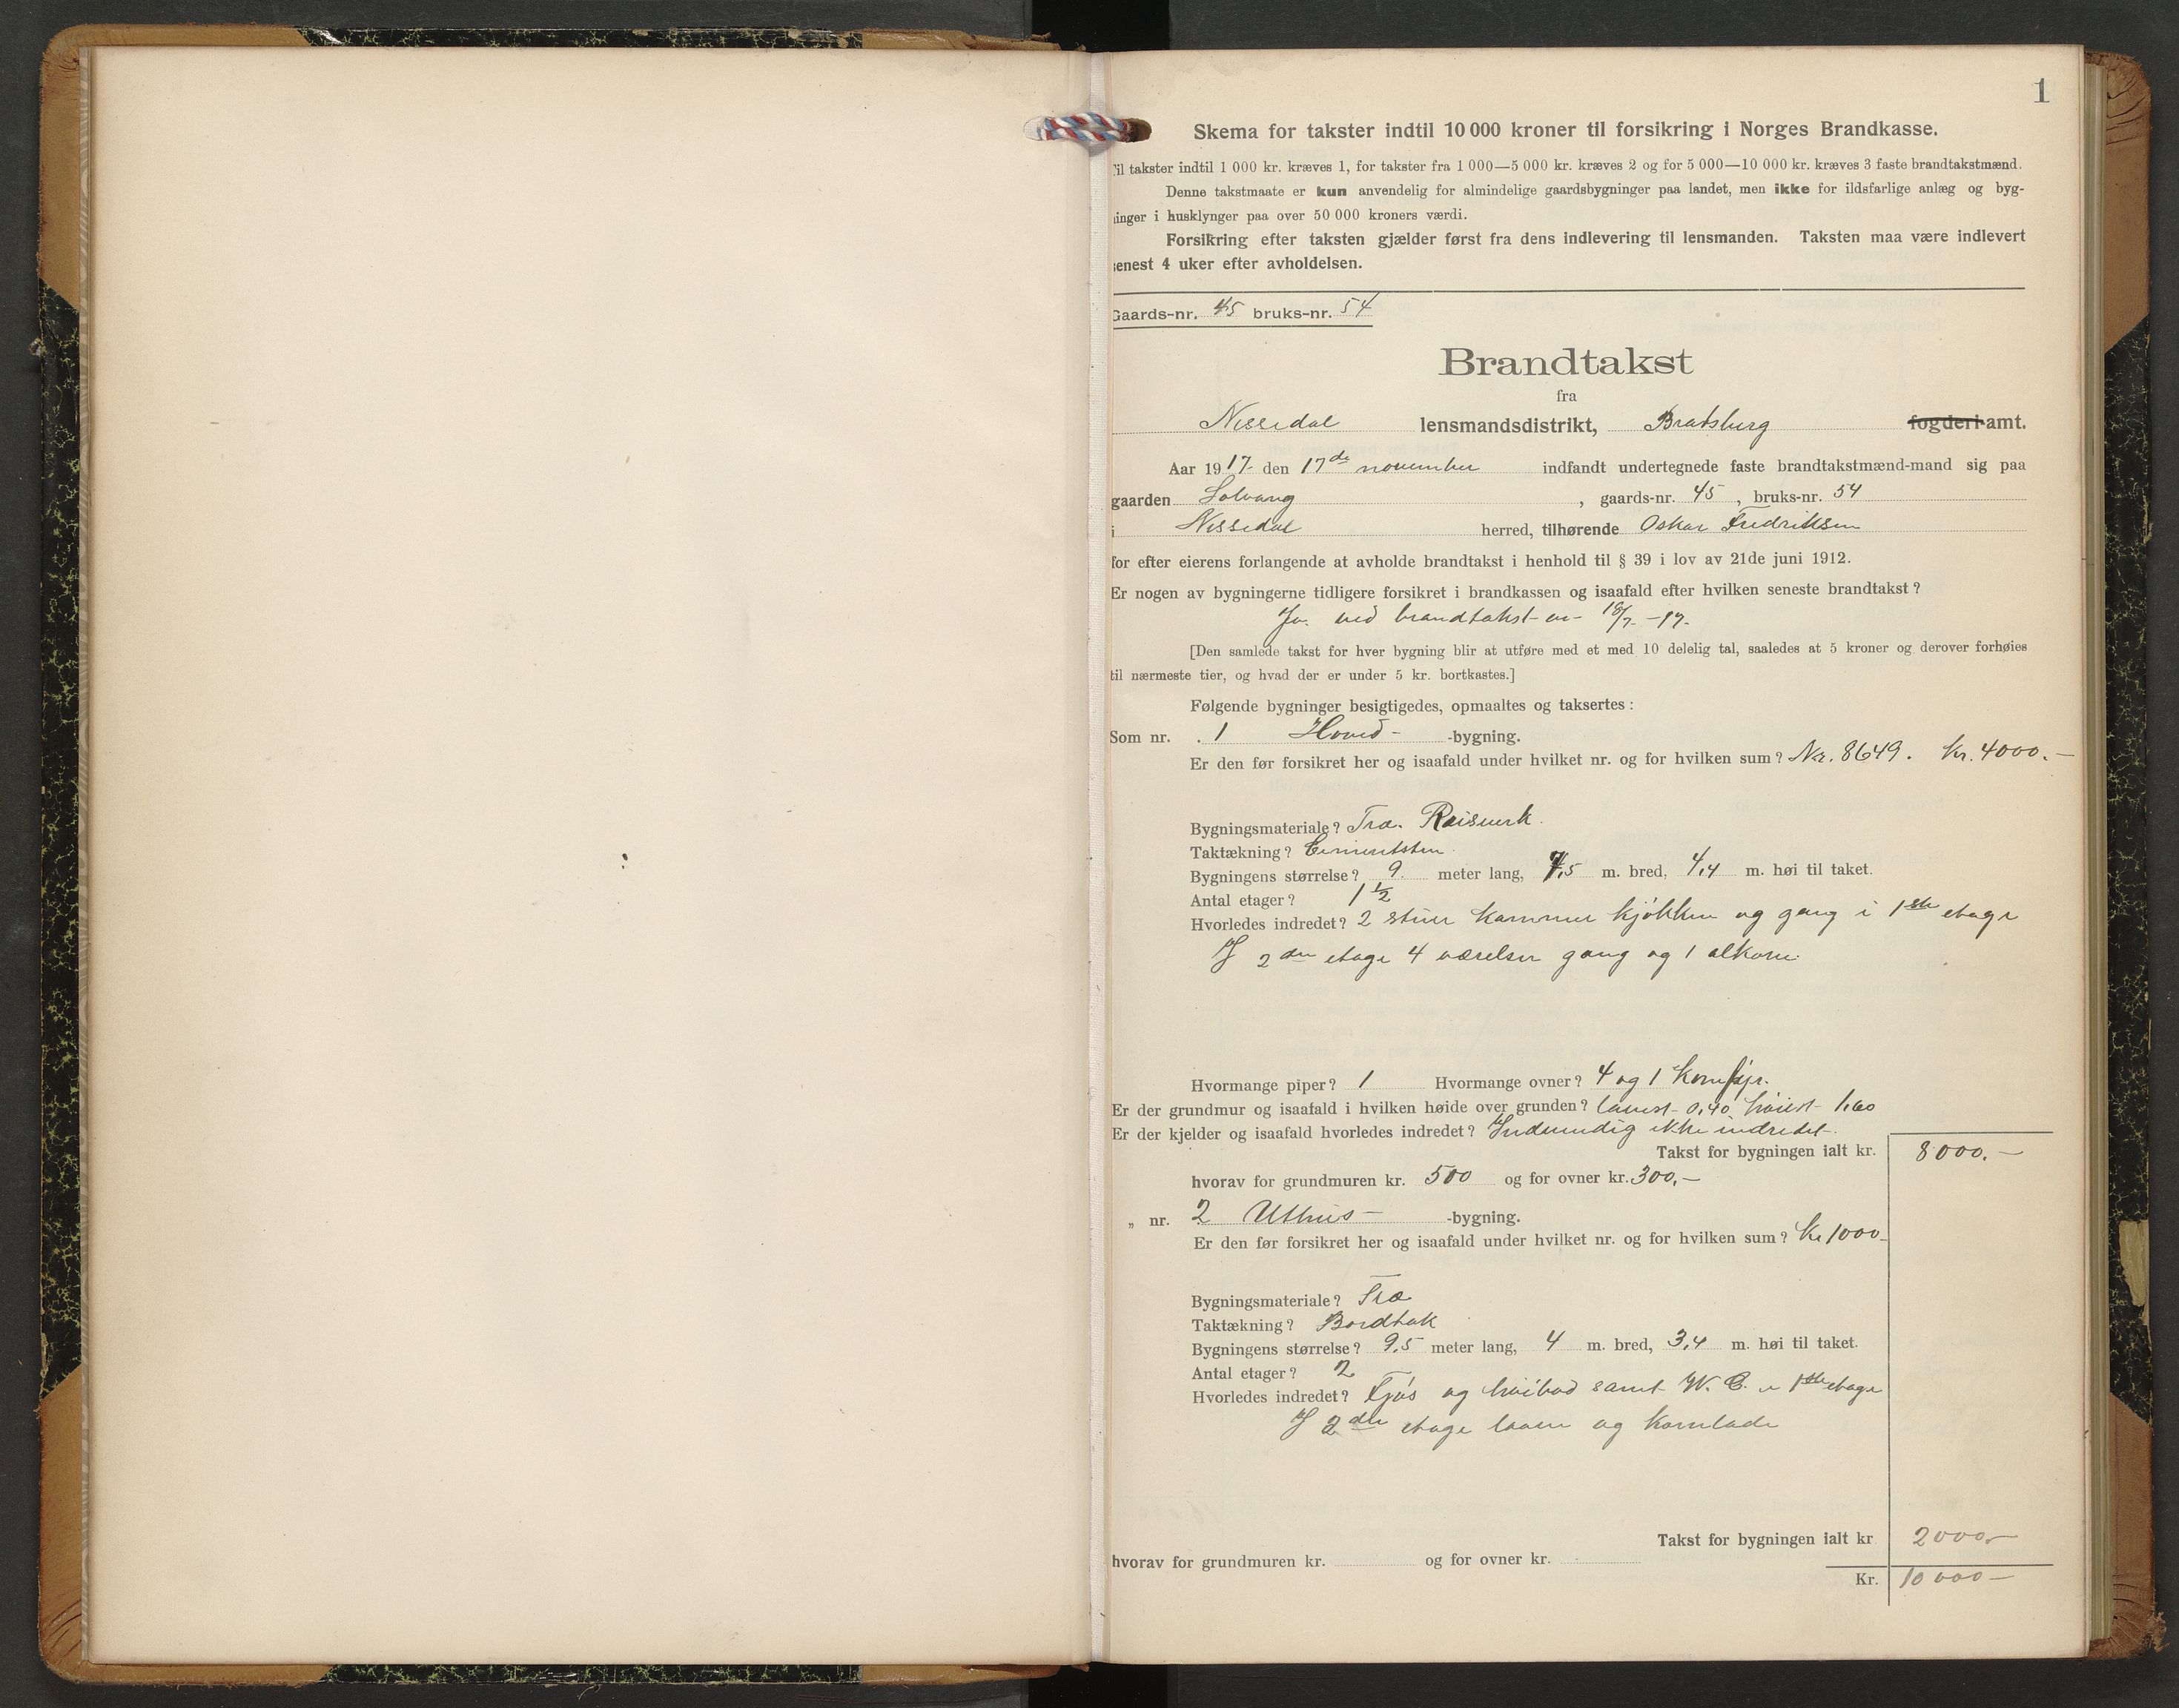 1
Skema for takster indtil 10 000 kroner til forsikring i Norges Brandkasse.
Til takster indtil 1 000 kr. kræves 1, for takster fra 1 000—5 000 kr. kræves 2 og for 5 000—10 000 kr. kræves 3 faste brandtakstmænd.
Denne takstmaate er kun anvendelig for almindelige gaardsbygninger paa landet, men ikke for ildsfarlige anlæg og byg-
ninger i husklynger paa over 50 000 kroners værdi.
Forsikring efter taksten gjælder først fra dens indlevering til lensmanden. Taksten maa være indlevert
senest 4 uker efter avholdelsen.
Gaards-nr. 45 bruks-nr. 54
Brandtakst
fra
Nissedal lensmandsdistrikt, Bratsberg fogderi-amt.
Aar 1917. den 17de november indfandt undertegnede faste brandtakstmænd-mand sig paa
gaarden Solvang, gaards-nr. 45, bruks-nr. 54
i Nissedal herred, tilhørende Oskar Fredriksen
for efter eierens forlangende at avholde brandtakst i henhold til § 39 i lov av 21de juni 1912.
Er nogen av bygningerne tidligere forsikret i brandkassen og isaafald efter hvilken seneste brandtakst?
Ja. ved brandtakst av 18/7 -17.
[Den samlede takst for hver bygning blir at utføre med et med 10 delelig tal, saaledes at 5 kroner og derover forhøies
til nærmeste tier, og hvad der er under 5 kr. bortkastes.]
Følgende bygninger besigtigedes, opmaaltes og taksertes:
Som nr. 1 Hoved- -bygning.
Er den før forsikret her og isaafald under hvilket nr. og for hvilken sum? Nr. 8649. Kr. 4000.—
Bygningsmateriale? Træ. Reisverk.
Taktækning? Cementsten
Bygningens størrelse? 9. meter lang, 7,5 m. bred, 4,4 m. høi til taket.
Antal etager? 1 1/2
Hvorledes indredet? 2 stuer kammer kjøkken og gang i 1ste etage
I 2den etage 4 værelser gang og 1 alkove.
Hvormange piper? 1 Hvormange ovner? 4 og 1 komfyr.
Er der grundmur og isaafald i hvilken høide over grunden? lavest 0,40, høiest 1,60
Er der kjelder og isaafald hvorledes indredet? Indvendig ikke indredet.
Takst for bygningen ialt kr. 8000.—
hvorav for grundmuren kr. 500 og for ovner kr. 300,—
„ nr. 2 Uthus- -bygning.
Er den før forsikret her og isaafald under hvilket nr. og for hvilken sum? Kr 1000-
Bygningsmateriale? Træ
Taktækning? Bordtak
Bygningens størrelse? 9,5 meter lang, 4 m. bred, 3,4 m. høi til taket.
Antal etager? 2
Hvorledes indredet? Fjøs og høibod samt W. C. i 1ste etage
I 2den etage laave og kornlade
Takst for bygningen ialt kr 2000,-
hvorav for grundmuren kr. og for ovner kr.
Kr. 10000—